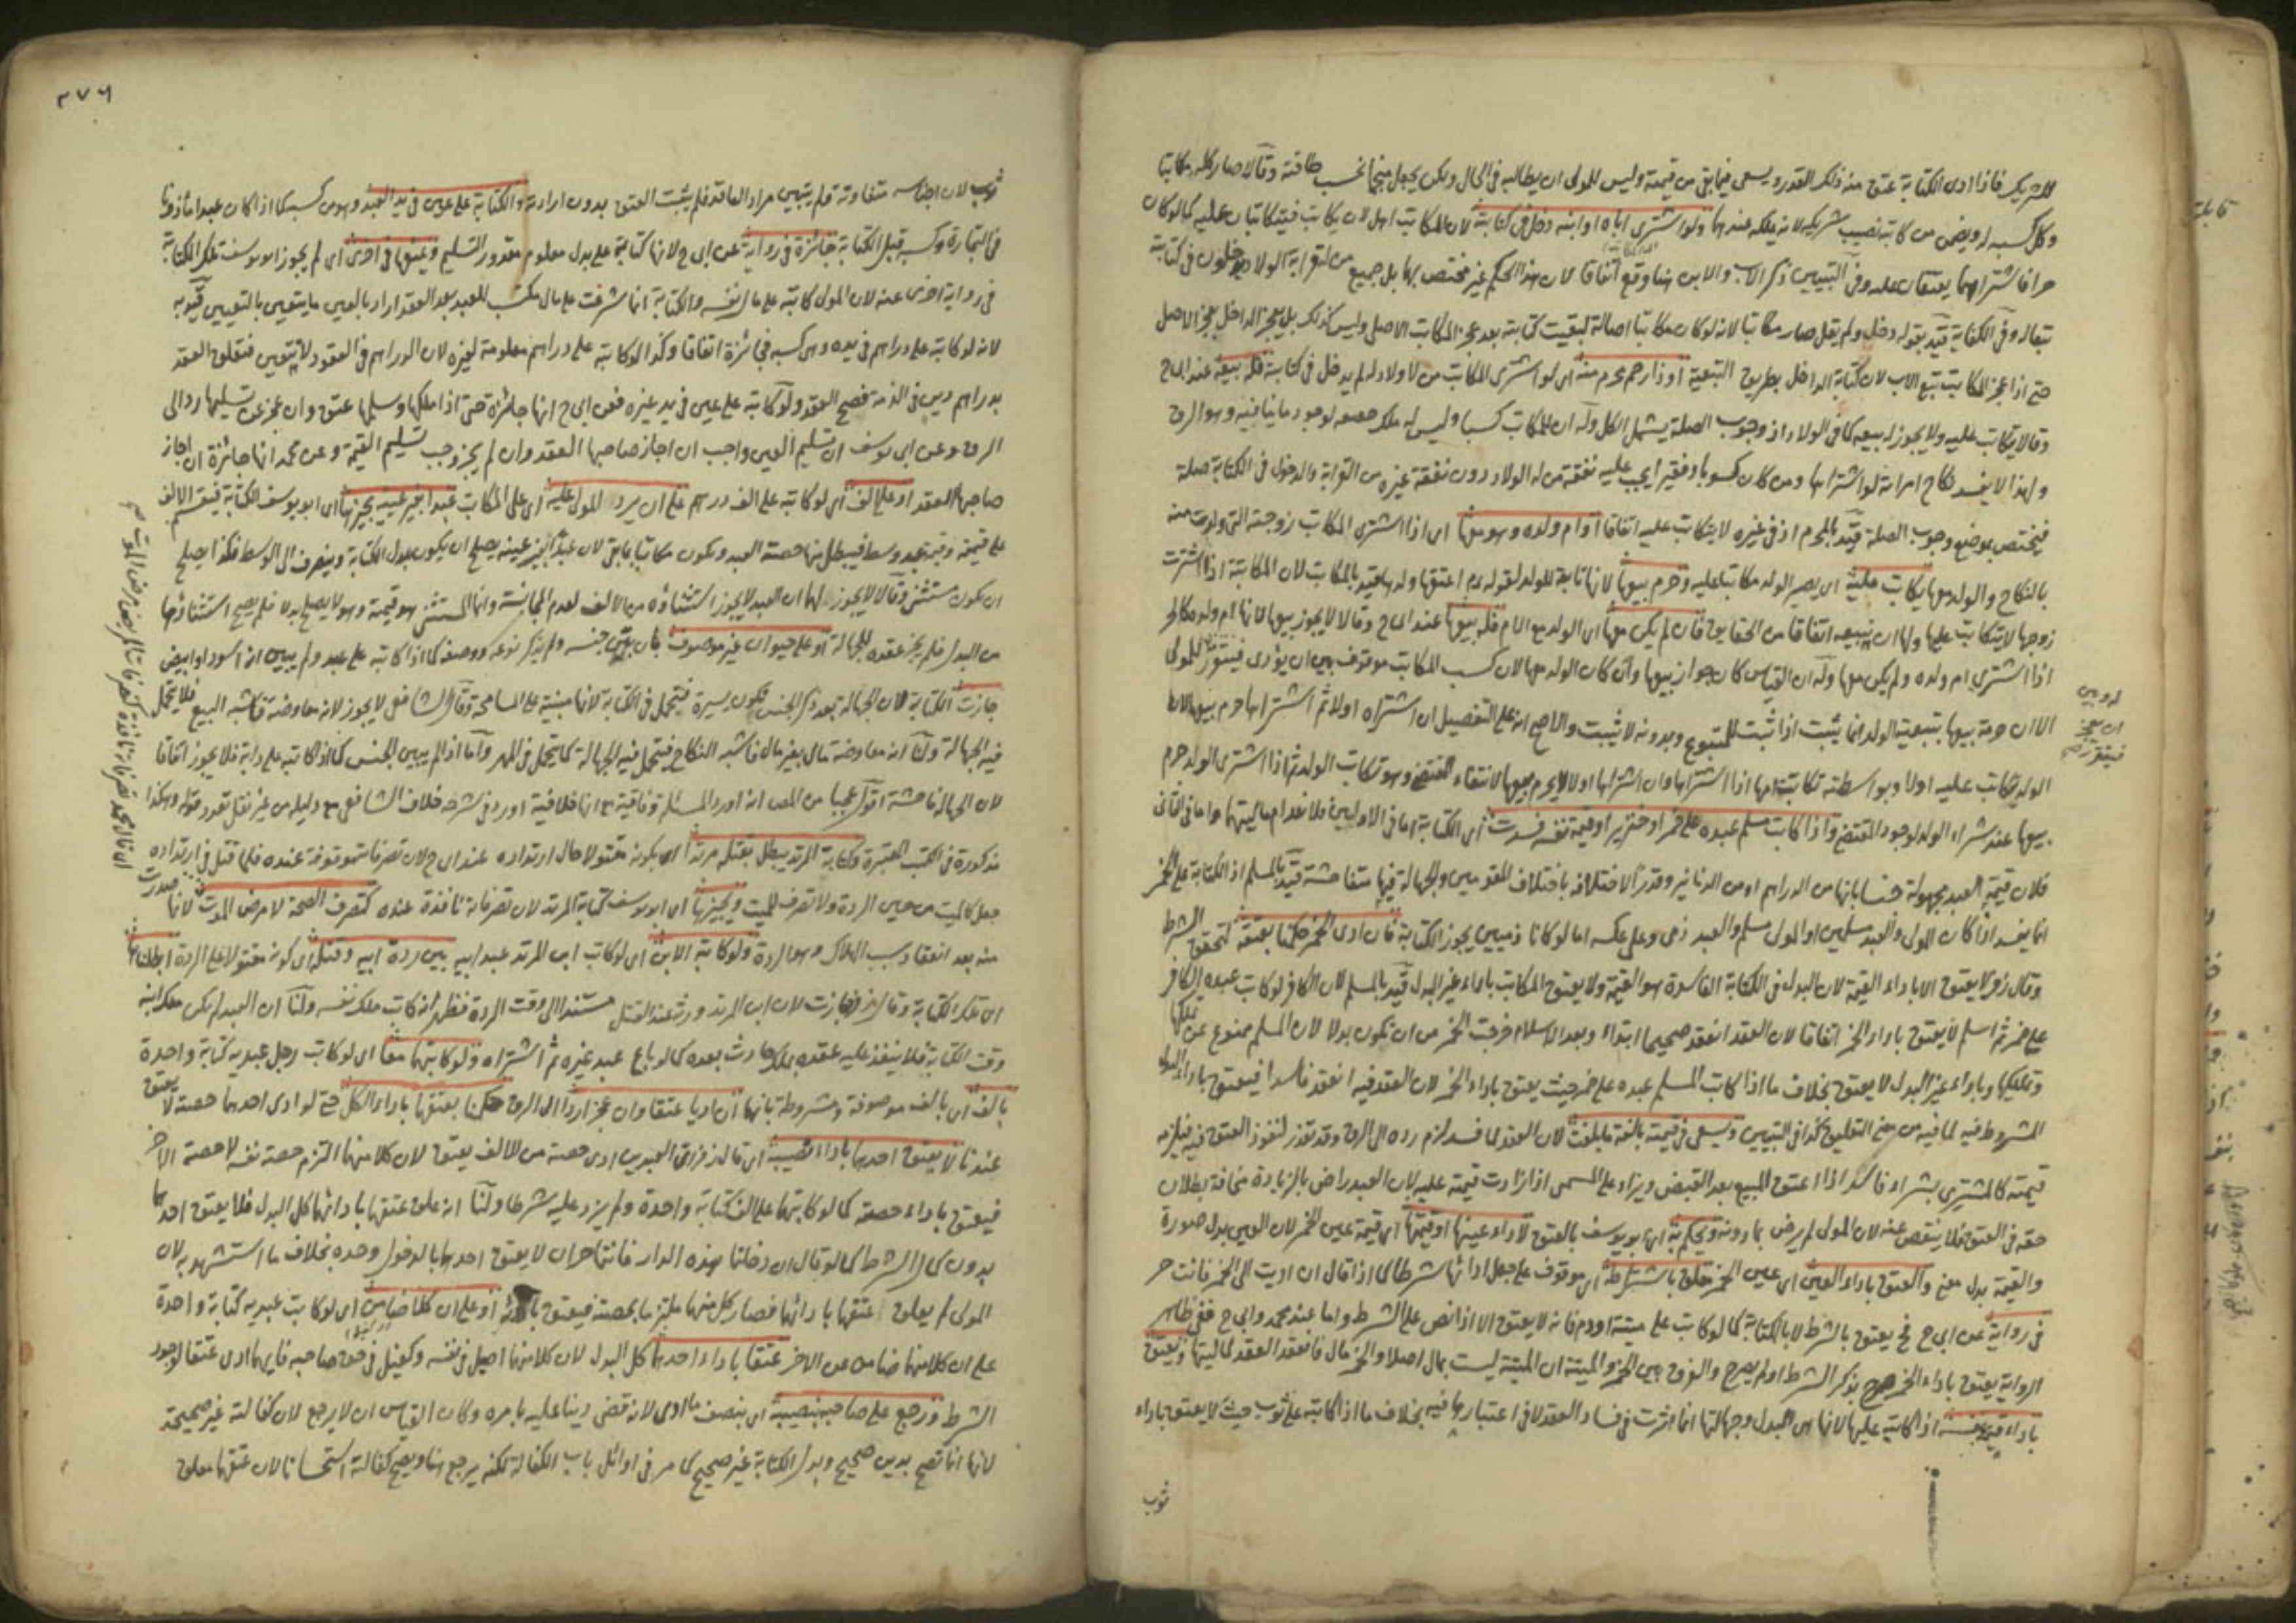 للشريك فاذا ادى الكتابة عتق منه ذلك القدر ويسعى فيما بقي من قيمته وليس للمولى ان يطالبه في الحال ولكن يجعل منجما بحسب طاقته وقالا صار كله مكاتبا
وكل كسبه له ويضمن من كاتبه نصيب شريكه لانه يملكه عندهما ولو اشترى اباه او ابنه دخل في كتابته لان المكاتب اهل لان يكاتب فيتكاتبان عليه كما لو كان
حرا فاشتراهما يعتقان عليه وفي التبيين ذكر الاب والابن هنا وقع اتفاقا لان هذا الحكم غير مختص بهما بل جميع من له قرابة الولاد يدخلون في كتابته
تبعا له وفي الكفاية قيد بقوله دخل ولم يقل صار مكاتبا لانه لو كان مكاتبا اصالة لبقيت كتابته بعد عجز المكاتب الاصلي وليس كذلك بل يعجز الداخل بعجز الاصل
حتى اذا عجز المكاتب تبع الاب لان كتابة الداخل بطريق التبعية او ذا رحم محرم منه اى لو اشترى المكاتب من لا ولاد له لم يدخل في كتابته فله بيعه عند ابى ح
وقالا يتكاتب عليه ولا يجوز له بيعه كما في الولاد اذ وجوب الصلة يشمل الكل وله ان للمكاتب كسبا وليس له ملك لوجود ما ينافيه وهو الرق
ولهذا لا يفسد نكاح امرأته لو اشتراها ومن كان كسوبا وفقيرا يجب عليه نفقة من له الولاد دون نفقة غيره من القرابة والدخول في الكتابة صلة
فيختص بموضع وجوب الصلة قيد بالمحرم اذ في غيره لا يتكاتب عليه اتفاقا او ام ولده وهو معها اى اذا اشترى المكاتب زوجته التي ولدت منه
بالنكاح والولد معها يكاتب عليه اى يصير الولد مكاتبا عليه وحرم بيعها لانها تابعة للولد لقوله عم اعتقها ولدها قيد بالمكاتب لان المكاتبة اذا اشترت
زوجها لا يتكاتب عليها ولها ان تبيعه اتفاقا من الحقايق فان لم يكن معها اى الولد مع الام فله بيعها عند ابى ح وقالا لا يجوز بيعها لانها ام ولده كالحر
اذا اشترى ام ولده ولم يكن معها وله ان القياس كان جواز بيعها وان كان الولد معها لان كسب المكاتب موقوف بين ان يؤدى فيتقرر للمولى
الا ان حرمة بيعها بتبعية الولد انما يثبت اذا ثبت للمتبوع وبدونه لا يثبت والاصح انه على التفصيل ان اشتراه اولا ثم اشتراها حرم بيعها لان
الولد تكاتب عليه اولا وبواسطته تكاتبت امها اذا اشتراها وان اشتراها اولا لا يحرم بيعها لانتفاء المقتضى وهو تكاتب الولد ثم اذا اشترى الولد حرم
بيعها عند شراء الولد لوجود المقتضى واذا كاتب مسلم عبده على خمر او خنزير او قيمة نفسه فسدت اى الكتابة اما في الاولين فلانعدام ماليتهما واما في الثانى
فلان قيمة العبد مجهولة جنسا بانها من الدراهم او من الدنانير وقدرا لاختلافه باختلاف المقومين والجهالة فيها متفاحشة قيد بالمسلم اذ الكتابة على الخمر
انما يفسد اذا كان المولى والعبد مسلمين او المولى مسلم والعبد ذمى وعلى عكسه اما لو كانا ذميين يجوز الكتابة فان ادى الخمر حكمنا بعتقه لتحقق الشرط
وقال زفر لا يعتق الا باداء القيمة لان البدل في الكتابة الفاسدة هو القيمة ولا يعتق المكاتب باداء غير البدل قيد بالمسلم لان الكافر لو كاتب عبده الكافر
على خمر ثم اسلم لا يعتق باداء الخمر اتفاقا لان العقد انعقد صحيحا ابتداء وبعد الاسلام خرجت الخمر من ان تكون بدلا لان المسلم ممنوع عن تملكها
وتمليكها وباداء غير البدل لا يعتق بخلاف ما اذا كاتب المسلم عبده على خمر حيث يعتق باداء الخمر لان العقد فيه انعقد فاسدا فيعتق باداء البدل
المشروط فيه لما فيه من معنى التعليق كذا في التبيين ويسعى في قيمته بالغة ما بلغت لان العقد لما فسد لزم رده الى الرق وقد تعذر لنفوذ العتق فيه فيلزمه
قيمته كالمشترى بشراء فاسد اذا اعتق المبيع بعد القبض ويزاد على المسمى اذا زادت قيمته عليه لان العبد راض بالزيادة مخافة بطلان
حقه في العتق فلا ينقص عنه لان المولى لم يرض بما دونه ويحكم به اى ابو يوسف بالعتق لاداء عينها او قيمتها اى قيمة عين الخمر لان العين بدل صورة
والقيمة بدل معنى والعتق باداء العين اى عين الخمر معلق باشتراطه اى موقوف على جعل ادائها شرطا كما اذا قال ان اديت الى الخمر فانت حر
في رواية عن ابى ح فح يعتق بالشرط لا بالكتابة كما لو كاتب على ميتة او دم فانه لا يعتق الا اذا نص على الشرط واما عند محمد وابى ح ففي ظاهر
الرواية يعتق باداء الخمر صرح بذكر الشرط او لم يصرح والفرق بين الخمر والميتة ان الميتة ليست بمال اصلا والخمر مال فانعقد العقد لماليتها ويعتق
باداء قيمة نفسه اذا كاتبه عليها لانها هى البدل وجهالتها انما اثرت في فساد العقد لا في اعتبارها فيه بخلاف ما اذا كاتبه على ثوب حيث لا يعتق باداء
ثوب
٢٧٦
ثوب لان اجناسه متفاوتة فلم يتبين مراد العاقد فلم يثبت العتق بدون ارادته والكتابة على عين في يد العبد وهو من كسبه كما اذا كان عبدا ماذونا
في التجارة وكسبه قبل الكتابة جائزة في رواية عن ابى ح لانها كتابة على بدل معلوم مقدور التسليم ويمنعها في اخرى اى لم يجوز ابو يوسف تلك الكتابة
في رواية اخرى عنه لان المولى كاتبه على مال نفسه والكتابة انما شرعت على مال مكتسب للعبد بعد العقد اراد بالعين ما يتعين بالتعيين قيد به
لانه لو كاتبه على دراهم في يده وهى كسبه فجائزة اتفاقا وكذا لو كاتبه على دراهم معلومة لغيره لان الدراهم في العقود لا يتعين فتعلق العقد
بدراهم دين في الذمة فصح العقد ولو كاتبه على عين في يد غيره فعن ابى ح انها جائزة حتى اذا ملكها وسلمها عتق وان عجز عن تسليمها رد الى
الرق وعن ابى يوسف ان تسليم العين واجب ان اجاز صاحبها العقد وان لم يجز وجب تسليم القيمة وعن محمد انها جائزة ان اجاز
صاحبها العقد او على الف اى لو كاتبه على الف درهم على ان يرد المولى عليه اى على المكاتب عبدا بغير عينه يجيزها اى ابو يوسف الكتابة فيقسم الالف
على قيمته وقيمة عبد وسط فيبطل منها حصة العبد ويكون مكاتبا بما بقي لان عبدا بغير عينه يصلح ان يكون بدل الكتابة وينصرف الى الوسط فكذا يصلح
ان يكون مستثنى وقالا لا يجوز لهما ان العبد لا يجوز استثناؤه من الالف لعدم المجانسة وانما المستثنى هو قيمته وهو لا يصلح بدلا فلم يصح استثناؤها
من البدل فلم يجز عقده للجهالة او على حيوان غير موصوف بان بين جنسه ولم يذكر نوعه ووصفه كما اذا كاتبه على عبد ولم يبين انه اسود او ابيض
جازت الكتابة لان الجهالة بعد ذكر الجنس تكون يسيرة فتحمل في الكتابة لانها مبنية على المسامحة وقال الشافعى لا يجوز لانه معاوضة فاشبه البيع فلا يتحمل
فيه الجهالة ولنا انه معاوضة مال بغير مال فاشبه النكاح فيتحمل فيه الجهالة كما يتحمل في المهر واما اذا لم يبين الجنس كما اذا كاتبه على دابة فلا يجوز اتفاقا
لان الجهالة فاحشة اقول عجبا من المص انه اورد المسئلة وفاقية مع انها خلافية اورد في شرحه خلاف الشافعى مع دليله من غير نقل تعدد قوله وهكذا
مذكورة في الكتب المعتبرة وكتابة المرتد يبطل بقتله مرتدا اى بكونه مقتولا حال ارتداده عند ابى ح لان تصرفاته موقوفة عنده فلما قتل في ارتداده
جعل كالميت من حين الردة ولا تصرف للميت ويجيزها اى ابو يوسف كتابة المرتد لان تصرفاته نافذة عنده كتصرف الصحة لا مرض الموت لانها صدرت
منه بعد انعقاد سبب الهلاك وهو الردة ولو كاتبه الابن اى لو كاتب ابن المرتد عبد ابيه بين ردة ابيه وقتله اى كونه مقتولا على الردة ابطلناها
اى تلك الكتابة وقال زفر جازت لان ابن المرتد ورثه عند القتل مستندا الى وقت الردة فظهر انه كاتب ملك نفسه ولنا ان العبد لم يكن ملك ابنه
وقت الكتابة فلا ينفذ عليه عقده بملك حادث بعده كما لو باع عبد غيره ثم اشتراه ولو كاتبهما معا اى لو كاتب رجل عبديه كتابة واحدة
بالف اى بالف موصوفة ومشروطة بانهما ان اديا عتقا وان عجزا ردا الى الرق حكمنا بعتقهما باداء الكل حتى لو ادى احدهما حصته لا يعتق
عندنا لا يعتق احدهما باداء نصيبه اى قال زفر اى العبدين ادى حصته من الالف يعتق لان كلا منهما التزم حصة نفسه لا حصة الآخر
فيعتق باداء حصته كما لو كاتبهما على الف كتابة واحدة ولم يزد عليه شرطا ولنا انه علق عتقهما بادائهما كل البدل فلا يعتق احدهما
بدون كمال الشرط كما لو قال ان دخلتما هذه الدار فانتما حران لا يعتق احدهما بالدخول وحده بخلاف ما استشهد به لان
المولى لم يعلق عتقهما بادائهما فصار كل منهما ملتزما بحصته فيعتق بادائه او على ان كلا ضامن اى لو كاتب عبديه كتابة واحدة
على ان كلا منهما ضامن عن الآخر عتقا باداء احدهما كل البدل لان كلا منهما اصيل في نفسه وكفيل في حق صاحبه فايهما ادى عتقا لوجود
الشرط ورجع على صاحبه بنصيبه اى بنصف ما ادى لانه قضى دينا عليه بامره وكان القياس ان لا يرجع لان كفالته غير صحيحة
لانها انما تصح بدين صحيح وبدل الكتابة غير صحيح كما مر في اوائل باب الكفالة لكنه يرجع هنا ويصح كفالته استحسانا لان عتقهما معلق
ان قال محمد تصرفاته نافذة كتصرفات المريض مرض الموت